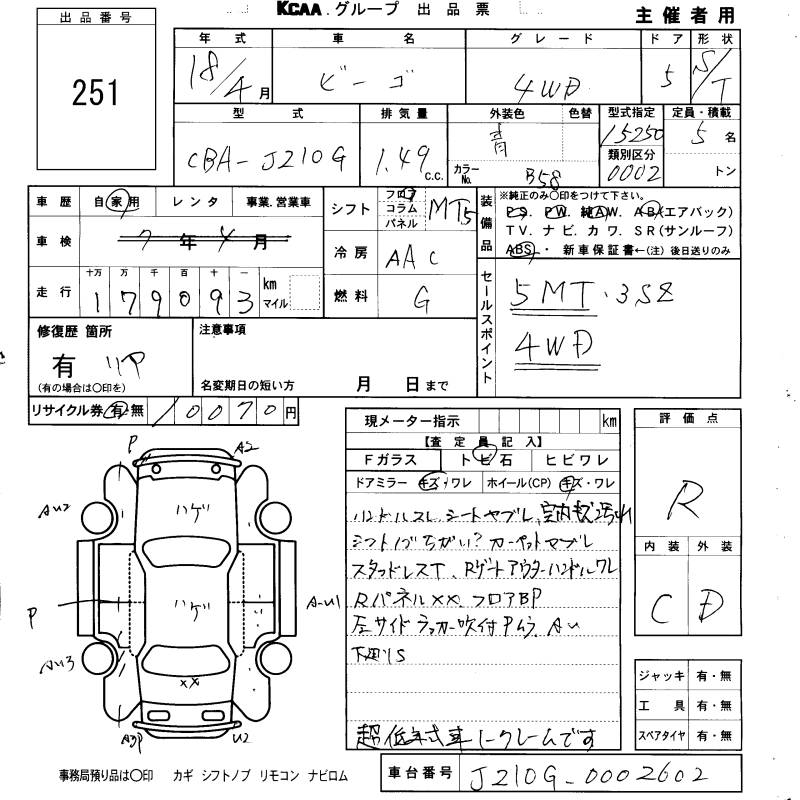 KCAA.グループ 出品票
主催者用
出品番号
251
年式 車名 グレード ドア 形状
18/4月 ビーゴ 4WD 5 S/T
型式 排気量 外装色 色替 型式指定 定員・積載
CBA-J210G 1.49 c.c. 青 15250 5名
カラーNo. B58 類別区分 0002 トン
車歴 自家用 レンタ 事業.営業車
シフト フロア コラム パネル MT5
装備品 ※純正のみ〇印をつけて下さい。
PS. PW. 純AW. AB(エアバック)
TV. ナビ. カワ. SR(サンルーフ)
ABS・ 新車保証書←(注) 後日送りのみ
車検 7年4月
冷房 AAC
走行 十万 万 千 百 十 一 km マイル
179093
燃料 G
セールスポイント
5MT・3SZ
4WD
修復歴 箇所
有 リア
(有の場合は〇印を)
注意事項
名変期日の短い方 月 日まで
リサイクル券 有・無 10070円
現メーター指示 km
【査定員記入】
Fガラス トビ石 ヒビワレ
ドアミラー キズ・ワレ ホイール(CP) キズ・ワレ
ハンドルスレ シートヤブレ 室内キズ汚れ
シフトノブちがい? カーペットヤブレ
スタッドレスT、Rゲートアウターハンドルワレ
RパネルXX. フロアBP
左サイド 吹付Pムラ AU
下廻りS
超低年式車ノークレームです
評価点
R
内装 外装
C D
ジャッキ 有・無
工具 有・無
スペアタイヤ 有・無
P A2
AU2 ハゲ
P ハゲ A-U1
AU3
XX
A3P U2
事務局預り品は〇印 カギ シフトノブ リモコン ナビロム
車台番号 J210G-0002602